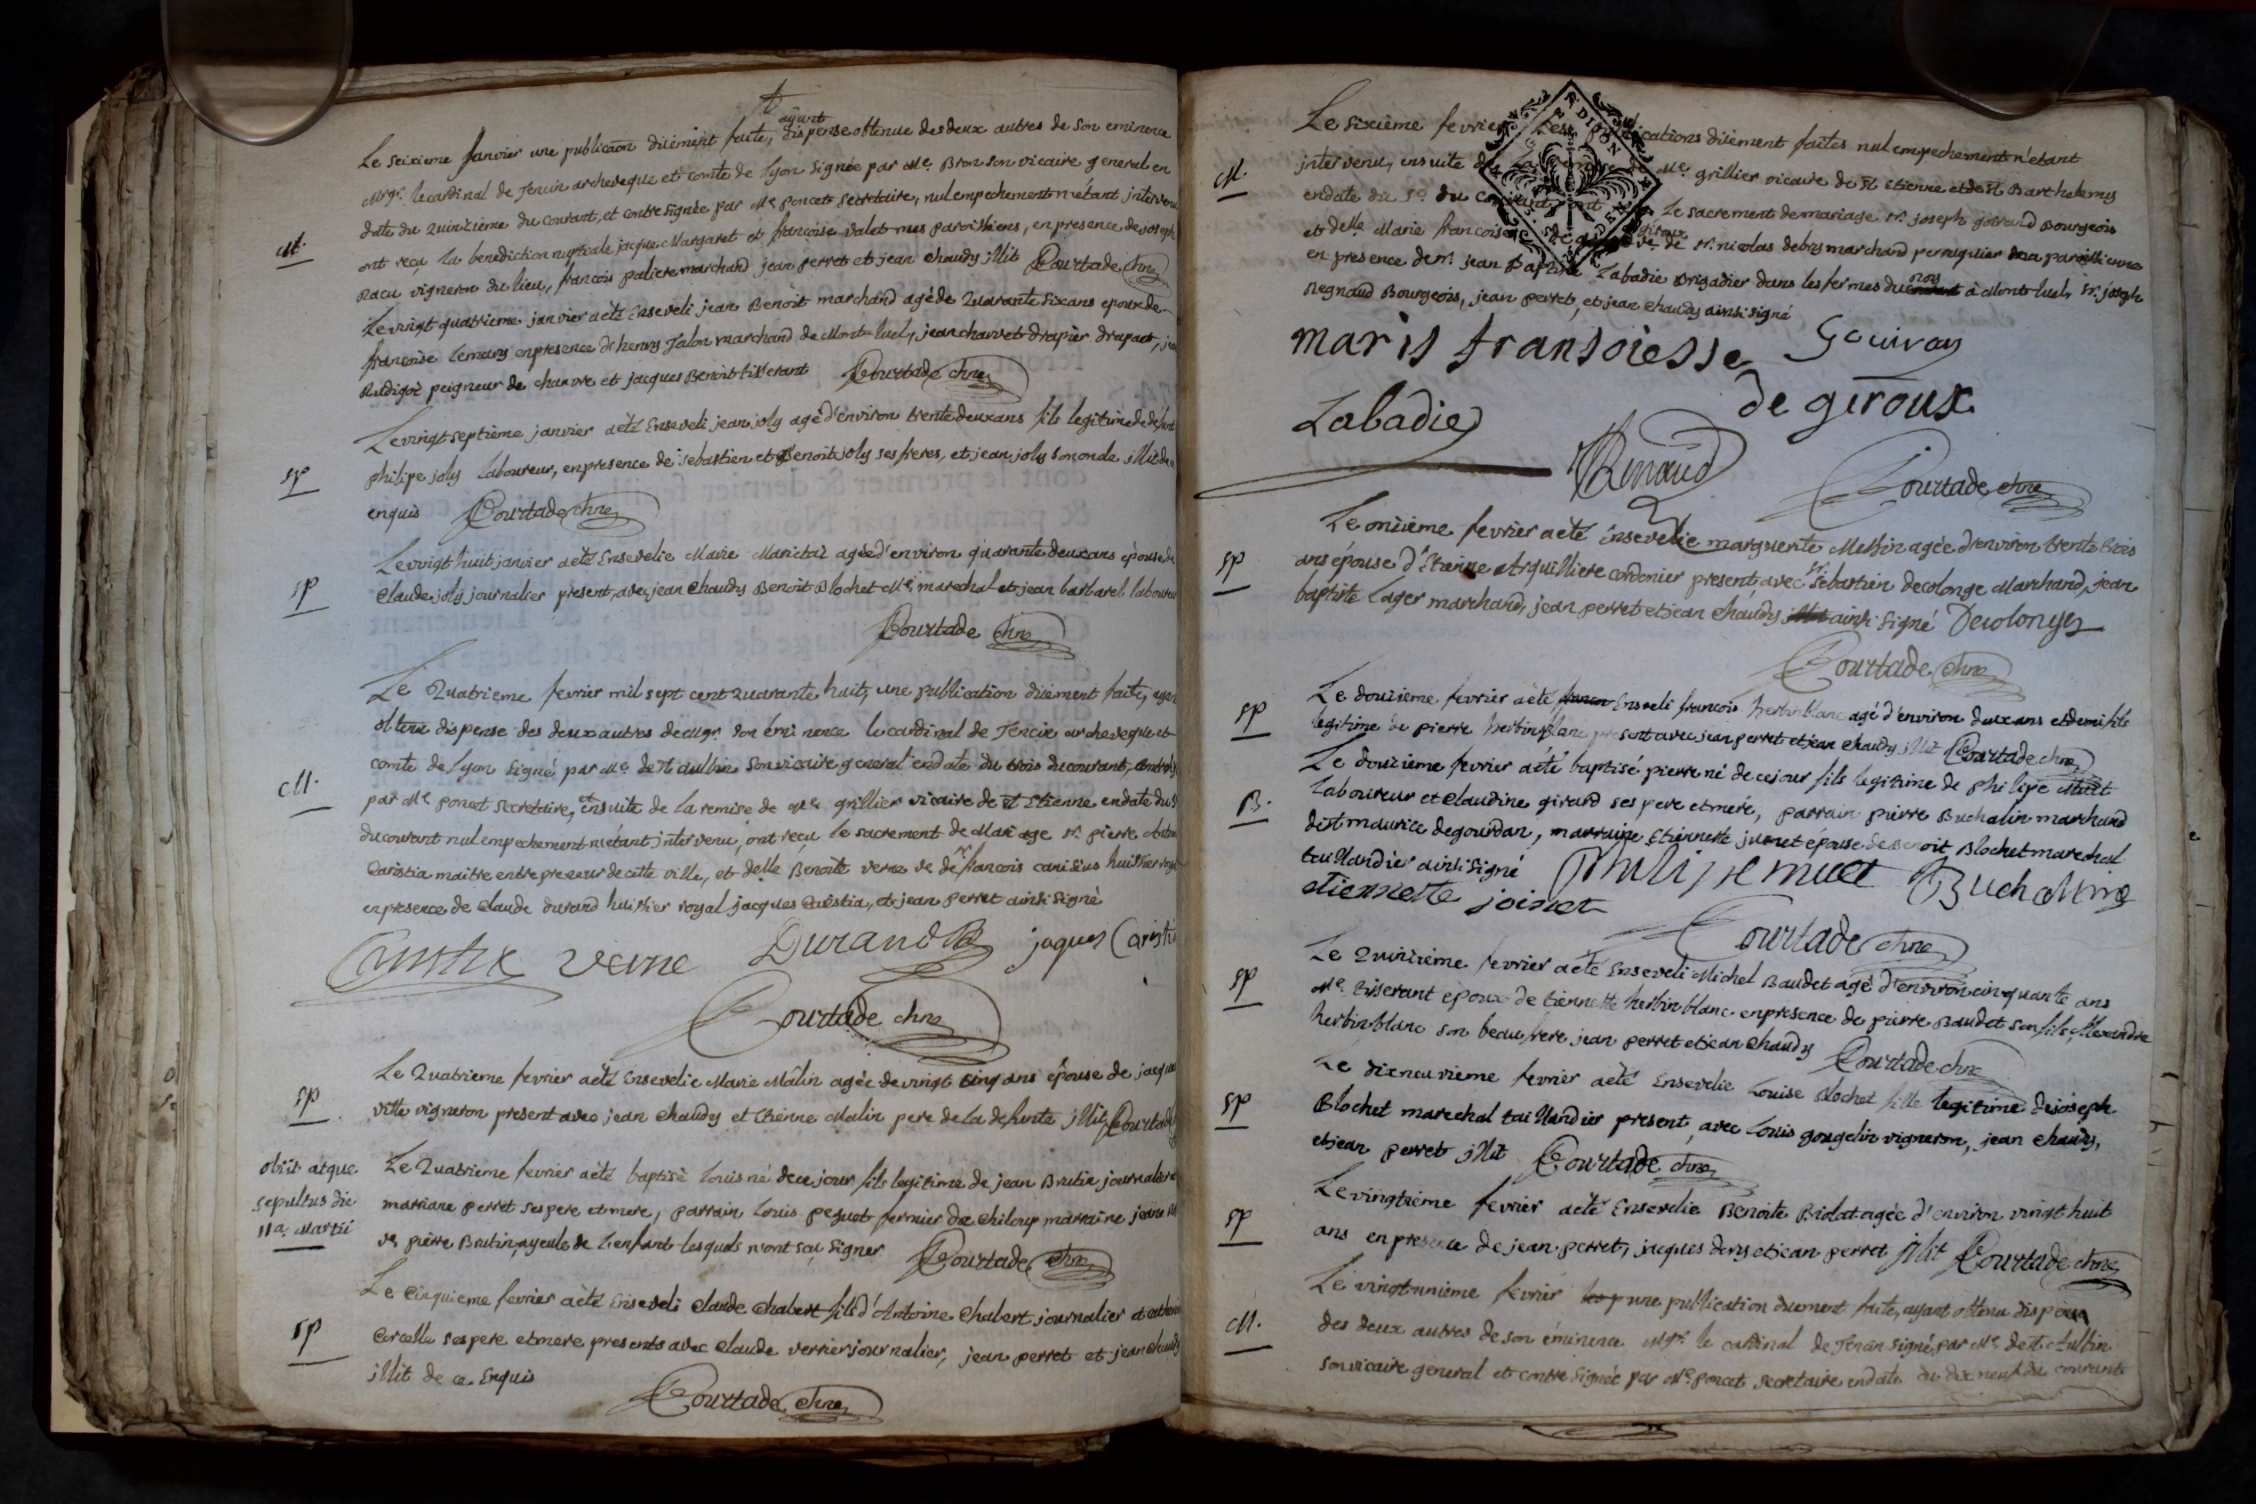 ayant
Le seizieme janvier une publicaon dûëment faite, dispense obtenue des deux autres de son eminence
Mgr. le cardinal de Tencin archeveque et comte de Lyon signée par Me. Bron son vicaire general en
M.
date du quinzieme du courant, et contresignée par Me poncet secretaire, nul empechement n'etant intervenu
ont reçu la benediction nuptiale jacque Margaret et françoise valet mes paroissiens, en presence de joseph
Nacu vigneron du lieu, francois paliere marchand jean perret et jean chaudy illit Courtade chne
Le vingt quatrieme janvier a eté enseveli jean Benoit marchand agé de quarante six ans epoux de
françoise Lemary en presence de henry Jalon marchand de Mont-luel, jean charvet drapier drapant,
Rudigoz peigneur de chanvre et jacques Benoit tixerant Courtade chne
Le vingt septième janvier a eté enseveli jean joly agé d'environ trente deux ans fils legitime de defunt
sp
philipe joly laboureur, en presence de sebastien et Benoit joly ses freres, et jean joly son oncle illit de
enquis Courtade chne
Le vingt huit janvier a eté ensevelie Marie Marietaz agée d'environ quarante deux ans épouse de
sp
Claude joly journalier present, avec jean chaudy Benoit Blochet Me. marechal et jean barbaret laboureur
Courtade chne
Le quatrieme fevrier mil sept cent quarante huit, une publication dûëment faite, ayant
obtenu dispense des deux autres de Mgr. son éminence le cardinal de Tencin archeveque et
comte de Lyon signé par Me. de St Aulbin son vicaire general en date du trois du courant, contresigné
M.
par Me poncet secretaire, et ensuite de la remise de Me. grillier vicaire de St Etienne en date du
du courant nul empechement n'étant intervenu, ont reçu le sacrement de Mariage Sr. pierre Antoine
Caristia maitre entrepreneur de cette ville, et delle Benoite verne ve de Sr francois canisius huissier royal
en presence de Claude durand huissier royal jacques Caristia, et jean perret ainsi signé
Caristia verne Durand jaques Caristia
Courtade chne
Le quatrieme fevrier a eté ensevelie Marie Mâlin agée de vingt cinq ans épouse de jacques
sp
vitte vigneron present avec jean chaudy et Etienne Malin pere de la defunte illit Courtade
obiit atque
sepultus die
11a. Martii
Le quatrieme fevrier a eté baptisé Louis né de ce jour fils legitime de jean Brutin journalier et
marriane perret ses pere et mere, parrain Louis pequet fermier de chiloup marraine jeane
ve pierre Brutin ayeule de l'enfant lesquels n'ont sçu signer Courtade chne
Le cinquieme fevrier a eté enseveli Claude chabert fils d'Antoine chabert journalier et catherine
sp
Corcelle ses pere et mere presents avec Claude verrier journalier, jean perret et jean chaudy
illit de ce enquis
Courtade chne
Le sixième fevrier les publications dûëment faites nul empechement n'etant
M.
intervenu, ensuite de la remise de Me. grillier vicaire de St Etienne et de St Barthelemy
en date du 5e. du courant ont le sacrement de mariage Sr. joseph bourgeois
et delle Marie francoise de giroux ve. de Sr. nicolas debry marchand perruquier ma paroissienne
en presence de Mr. jean Baptiste Labadie Brigadier dans les fermes du roy à Mont-luel, Sr. joseph
Regnaud Bourgeois, jean perret, et jean chaudy ainsi signé
maris fransoiesse
de geroux
Labadie
Renaud
Courtade chne
Le onzième fevrier a eté ensevelie marguerite Messin agée d'environ trente trois
sp
ans épouse d'Etienne Arquilliere cordonier present, avec Sr. sebastien decolonge Marchand, jean
baptiste Lager marchand, jean perret et jean chaudy ainsi signé Decolonge
Courtade chne
Le douzieme fevrier a eté enseveli francois herbinblanc agé d'environ deux ans et demi fils
sp
legitime de pierre herbinblanc present avec jean perret et jean chaudy illit Courtade chne
Le douzieme fevrier a été baptisé pierre né de ce jour fils legitime de philipe Muet
B.
laboureur et Claudine girard ses pere et mere, parrain pierre Buchalin marchand
dist maurice degourdan, marraine Etiennette junet épouse de Benoit Blochet marechal
taillandier ainsi signé philipe muet Buchallin
etiennette joinet
Courtade chne
Le quinzieme fevrier a eté enseveli Michel Baudet agé d'environ cinquante ans
sp
Me. tisserant epoux de tiennette herbinblanc en presence de pierre Baudet son fils, Alexandre
herbinblanc son beaufrere jean perret et jean chaudy Courtade chne
Le dixneuvieme fevrier a eté ensevelie Louise Blochet fille legitime de joseph
sp
Blochet marechal taillandier present, avec Louis gougelin vigneron, jean chaudy,
et jean perret illit Courtade chne
Le vingtieme fevrier a eté ensevelie Benoite Biolat agée d'environ vingt huit
sp
ans en presence de jean perret, jacques deny et jean perret illit Courtade chne
Le vingtunième fevrier une publication duement faite, ayant obtenu dispense
M.
des deux autres de son éminence Mgr. le cardinal de Tencin signé par Me de St. Aulbin
son vicaire general et contresignée par Me. poncet secretaire en date du dix neuf du courant